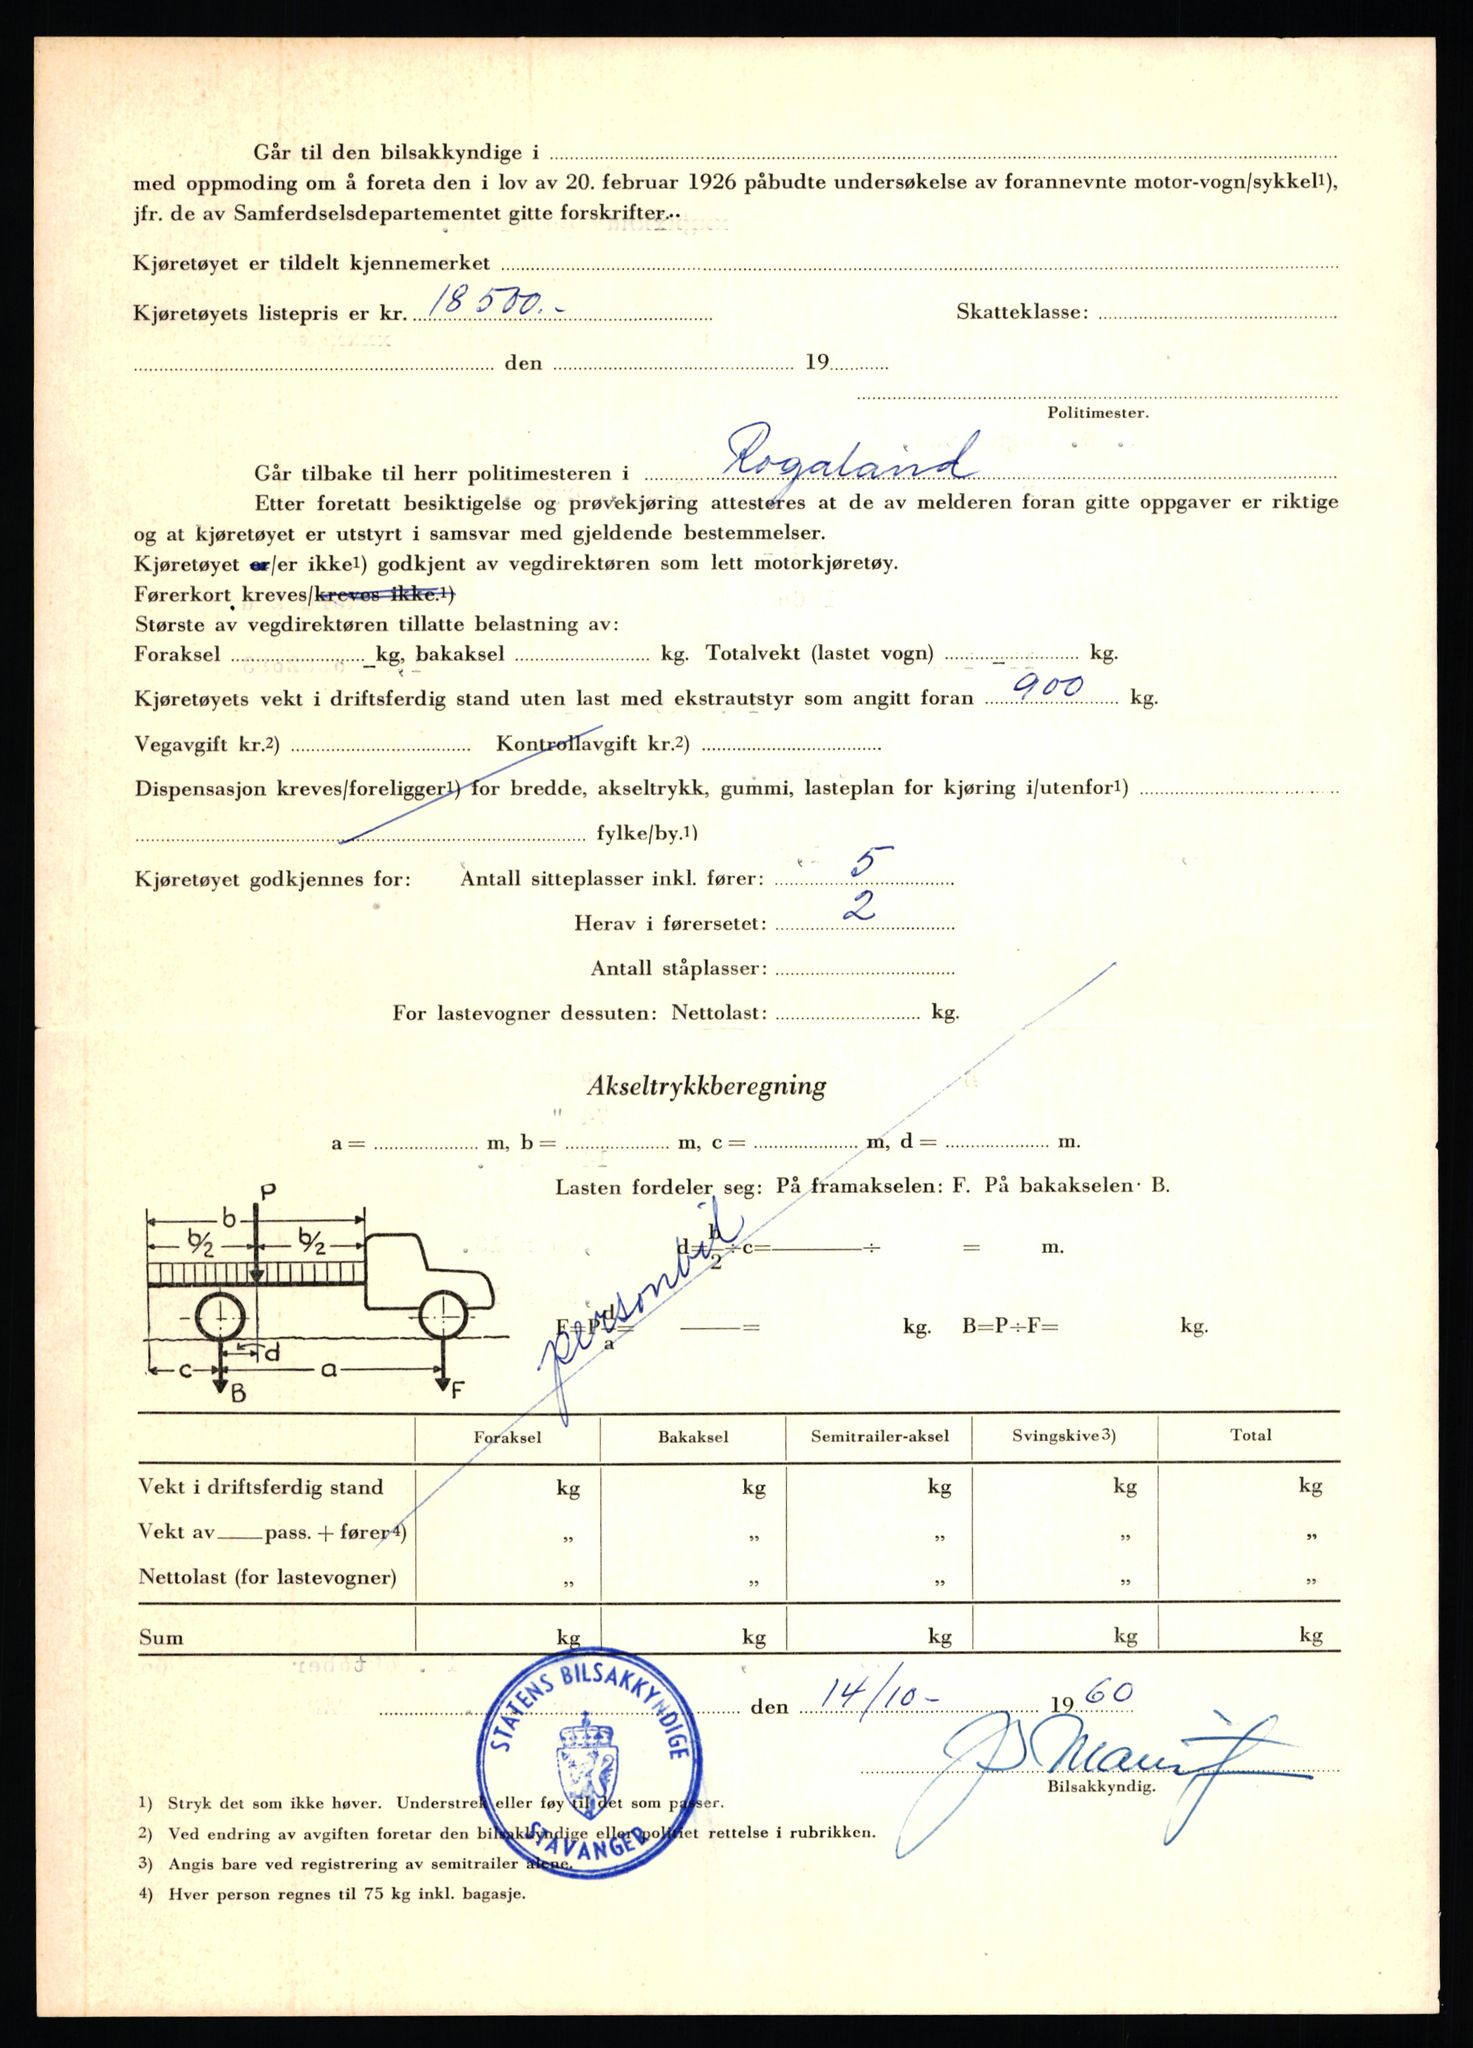 Går til den bilsakkyndige i
med oppmoding om å foreta den i lov av 20. februar 1926 påbudte undersøkelse av forannevnte motor-vogn/sykkel1),
jfr. de av Samferdselsdepartementet gitte forskrifter.
Kjøretøyet er tildelt kjennemerket
Kjøretøyets listepris er kr. 18 500.- Skatteklasse:
den 19
Politimester.
Går tilbake til herr politimesteren i Rogaland
Etter foretatt besiktigelse og prøvekjøring attesteres at de av melderen foran gitte oppgaver er riktige
og at kjøretøyet er utstyrt i samsvar med gjeldende bestemmelser.
Kjøretøyet er/er ikke1) godkjent av vegdirektøren som lett motorkjøretøy.
Førerkort kreves/kreves ikke.1)
Største av vegdirektøren tillatte belastning av:
Foraksel kg, bakaksel kg. Totalvekt (lastet vogn) kg.
Kjøretøyets vekt i driftsferdig stand uten last med ekstrautstyr som angitt foran 900 kg.
Vegavgift kr.2) Kontrollavgift kr.2)
Dispensasjon kreves/foreligger1) for bredde, akseltrykk, gummi, lasteplan for kjøring i/utenfor1)
fylke/by.1)
Kjøretøyet godkjennes for: Antall sitteplasser inkl. fører: 5
Herav i førersetet: 2
Antall ståplasser:
For lastevogner dessuten: Nettolast: kg.
Akseltrykkberegning
a = m, b = m, c = m, d = m.
Lasten fordeler seg: På framakselen: F. På bakakselen· B.
P
b
b/2 b/2
d=b/2÷c= ÷ = m.
personbil
F=P·d/a= = kg. B=P÷F= kg.
c d a
B F
Foraksel Bakaksel Semitrailer-aksel Svingskive3) Total
Vekt i driftsferdig stand kg kg kg kg kg
Vekt av pass. + fører4) „ „ „ „ „
Nettolast (for lastevogner) „ „ „ „ „
Sum kg kg kg kg kg
den 14/10- 1960
STATENS BILSAKKYNDIGE
STAVANGER
Bilsakkyndig.
1) Stryk det som ikke høver. Understrek eller føy til det som passer.
2) Ved endring av avgiften foretar den bilsakkyndige eller politiet rettelse i rubrikken.
3) Angis bare ved registrering av semitrailer alene.
4) Hver person regnes til 75 kg inkl. bagasje.